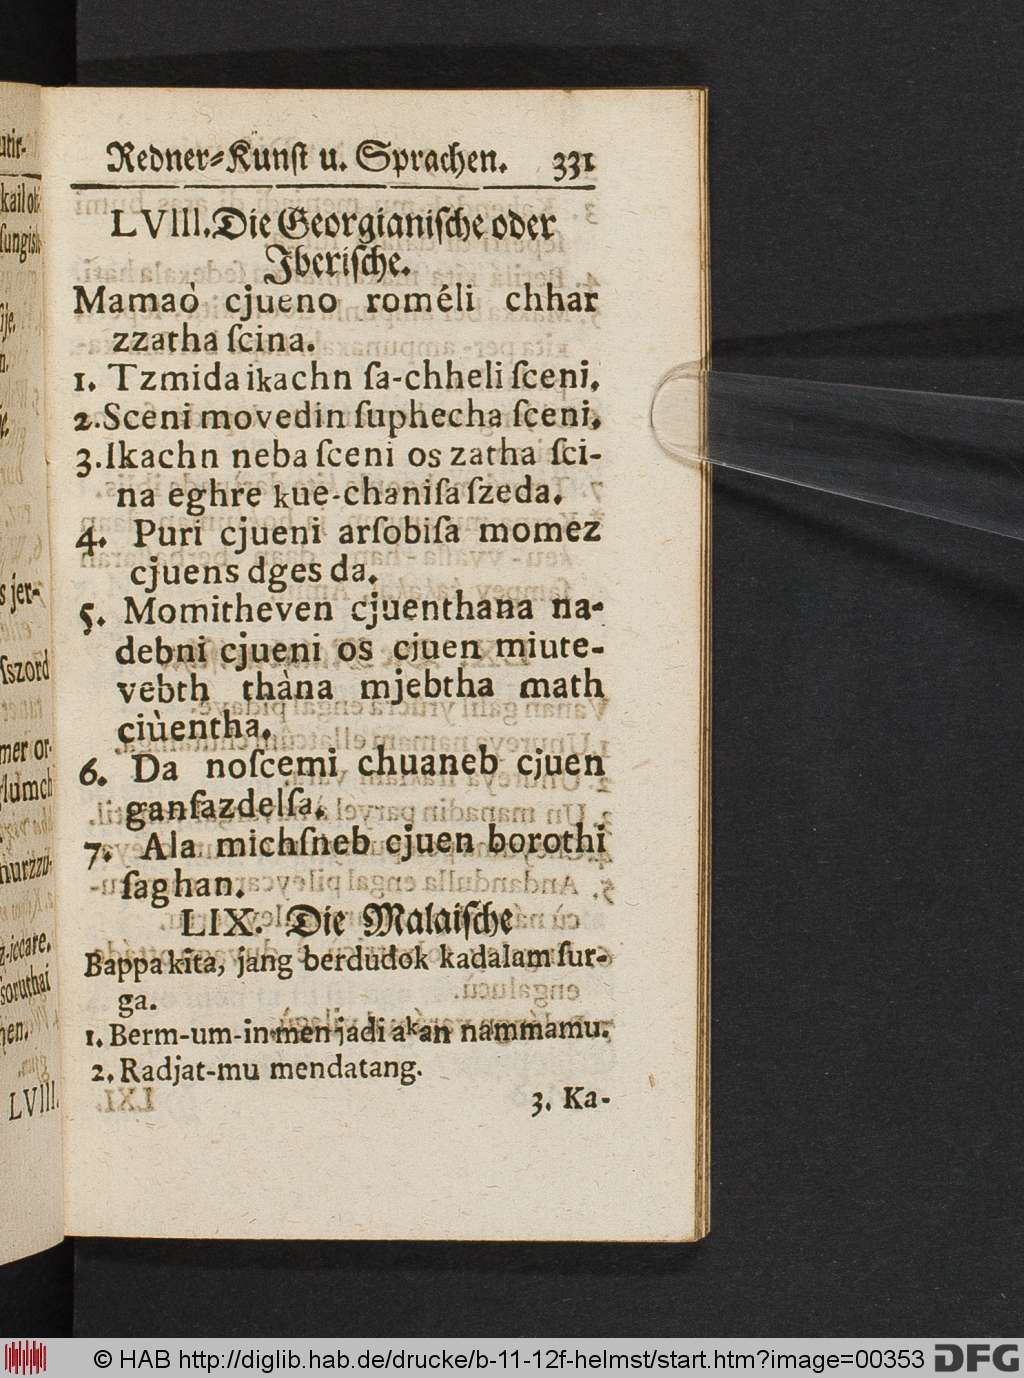 Redner-Kunst u. Sprachen. 331
LVIII. Die Georgianische oder
Iberische.
Mamaò cjueno roméli chhar
zzatha ſcina.
1. Tzmida ikachn ſa-chheli ſceni.
2. Sceni movedin ſuphecha ſceni.
3. Ikachn neba ſceni os zatha ſci-
na eghre kue-chaniſa ſzeda.
4. Puri cjueni arſobiſa momez
cjuens dges da.
5. Momitheven cjuenthana na-
debni cjueni os cjuen miute-
vebth thàna mjebtha math
ciùentha.
6. Da noſcemi chuaneb cjuen
ganſazdelſa.
7. Ala michſneb cjuen borothi
ſaghan.
LIX. Die Malaiſche
Bappa kita, jang berdudok kadalam ſur-
ga.
1. Berm-um-in men jadi akan nammamu.
2. Radjat-mu mendatang.
3. Ka-
kail ol
ſungis
s jer-
ſszord
mer or-
z-iccare.
ſoruthai
LVIII.
© HAB http://diglib.hab.de/drucke/b-11-12f-helmst/start.htm?image=00353 DFG